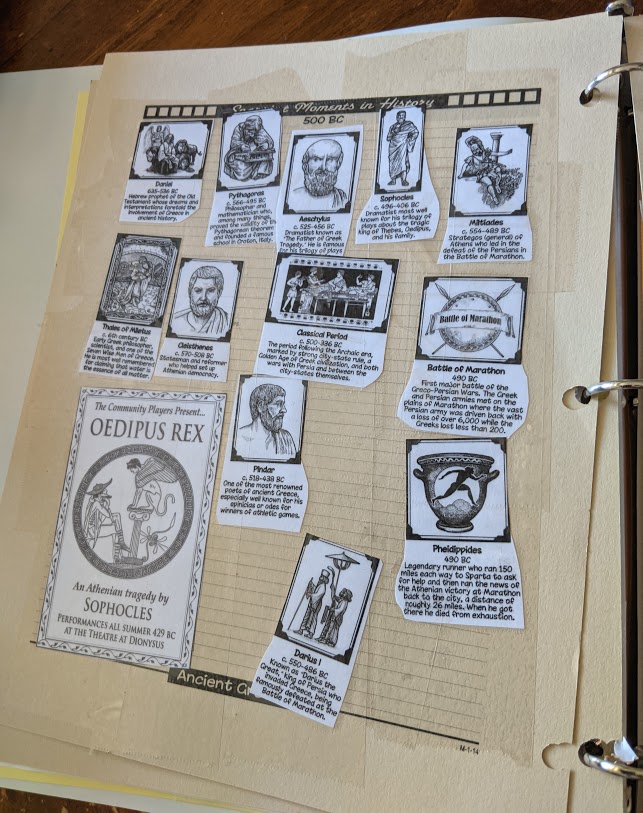 t Moments in History
500 BC
Daniel
635-536 BC
Hebrew prophet of the Old
Testament whose dreams and
interpretations foretold the
involvement of Greece in
ancient history.
Pythagoras
c. 566-495 BC
Philosopher and
mathematician who,
among many things,
proved the validity of the
Pythagorean theorem
and founded a famous
school in Croton, Italy.
Aeschylus
c. 525-456 BC
Dramatist known as
"The Father of Greek
Tragedy." He is famous
for his trilogy of plays
Sophocles
c. 496-406 BC
Dramatist most well
known for his trilogy of
plays about the tragic
king of Thebes, Oedipus,
and his family.
Miltiades
c. 554-489 BC
Strategos (general) of
Athens who led in the
defeat of the Persians in
the Battle of Marathon.
Thales of Miletus
c. 6th century BC
Early Greek philosopher,
scientist, and one of the
Seven Wise Men of Greece.
He is most well remembered
for claiming that water is
the essence of all matter.
Cleisthenes
c. 570-508 BC
Statesman and reformer
who helped set up
Athenian democracy.
Classical Period
c. 500-336 BC
The period following the Archaic era,
marked by strong city-state rule, a
Golden Age of Greek civilization, and both
wars with Persia and between the
city-states themselves.
Battle of Marathon
Battle of Marathon
490 BC
First major battle of the
Greco-Persian Wars. The Greek
and Persian armies met on the
plains of Marathon where the vast
Persian army was driven back with
a loss of over 6,000 while the
Greeks lost less than 200.
The Community Players Present...
OEDIPUS REX
An Athenian tragedy by
SOPHOCLES
PERFORMANCES ALL SUMMER 429 BC
AT THE THEATRE AT DIONYSUS
Pindar
c. 518-438 BC
One of the most renowned
poets of ancient Greece,
especially well known for his
epinicias or odes for
winners of athletic games.
Pheidippides
490 BC
Legendary runner who ran 150
miles each way to Sparta to ask
for help and then ran the news of
the Athenian victory at Marathon
back to the city, a distance of
roughly 26 miles. When he got
there he died from exhaustion.
Darius I
c. 550-486 BC
Known as "Darius the
Great," king of Persia who
invaded Greece, being
famously defeated at the
Battle of Marathon.
Ancient G
M-1-14